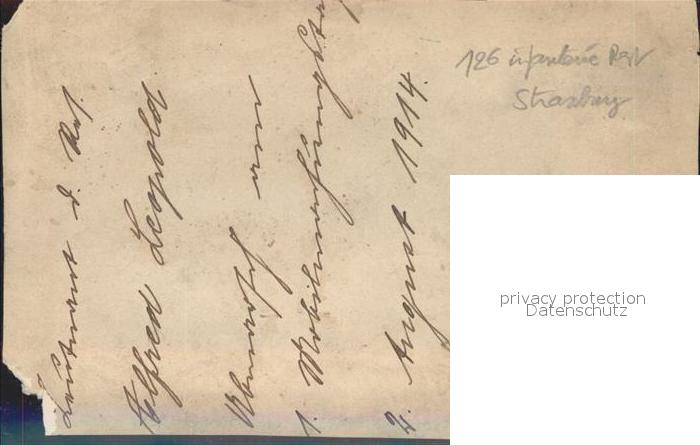 Leutnant d. Res.
Alfred Leopold.
Abmarsch am
1. Mobilmachungstag
2. August 1914.
126 infanterie Regt
Strasburg
privacy protection
Datenschutz